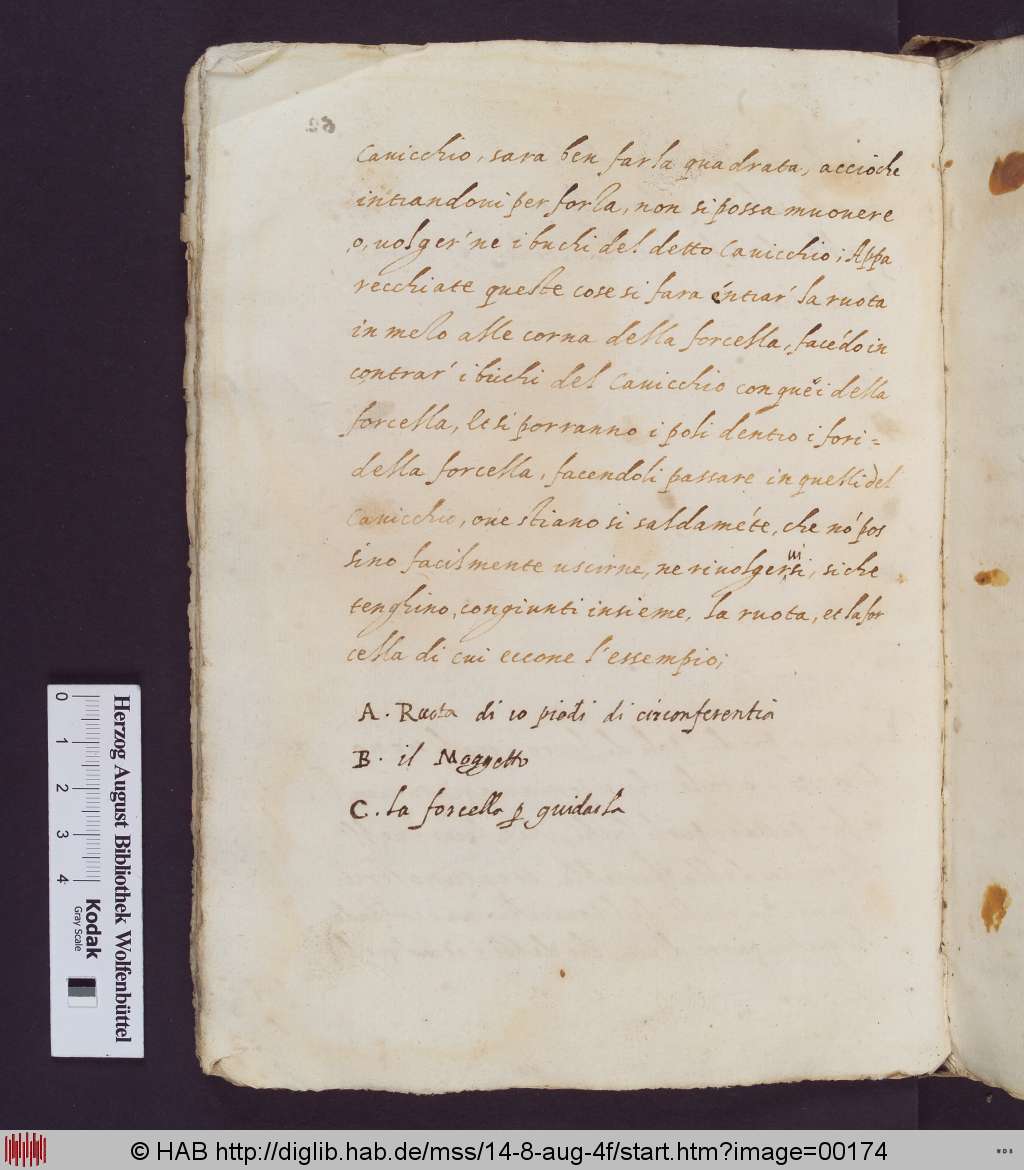 Cauicchio, sara ben farla quadrata, accioche
intrandoui per forza, non si possa muouere
o, uolger' ne i buchi del detto Cauicchio; Appa
recchiate queste cose si fara entrar' la ruota
in mezo alle corna della forcella, facẽdo in
contrar' i buchi del Cauicchio con quei della
forcella, et si porranno i poli dentro i fori=
della forcella, facendoli passare in quelli del
Cauicchio, oue stiano si saldamẽte, che nõ pos
sino facilmente uscirne, ne riuolgeruisi, si che
tenghino, congiunti insieme, la ruota, et la for
cella di cui eccone l'essempio;
A. Ruota di 10 piedi di circonferentia
B. il Mozzetto
C. la forcella p guidarla
0 1 2 3 4
Kodak
Gray Scale
Herzog August Bibliothek Wolfenbüttel
© HAB http://diglib.hab.de/mss/14-8-aug-4f/start.htm?image=00174